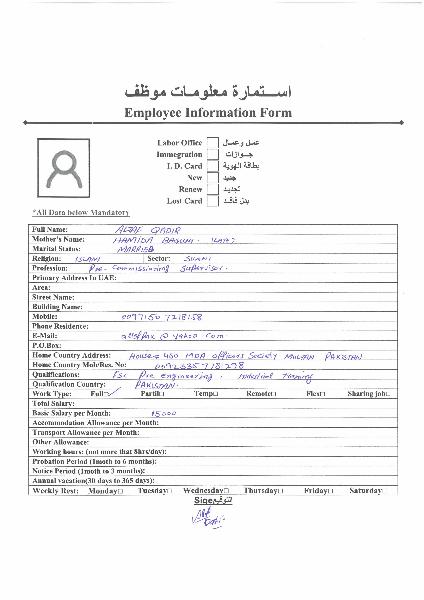 استمارة معلومات موظف
Employee Information Form
Labor Office عمل وعمال
Immegration جوازات
I. D. Card بطاقة الهوية
New جديد
Renew تجديد
Lost Card بدل فاقد
*All Data below Mandatory
Full Name: ALTAF QADIR
Mother's Name: HAMIDA BAGUM
Marital Status: MARRIED
Religion: ISLAM Sector: SUNNI
Profession: Pre-Commissioning Supervisor.
Primary Address In UAE:
Area:
Street Name:
Building Name:
Mobile: 0097150 7218158
Phone Residence:
E-Mail: @ yahoo.com
P.O.Box:
Home Country Address: House # 460 MDA Officers Society Multan PAKISTAN
Home Country Mob/Res. No:
Qualifications: FSc Pre Engineering. Industrial Training
Qualification Country: PAKISTAN.
Work Type: Full Partih Temp. Remote Flext Sharing job
Total Salary:
Basic Salary per Month: 15000
Accommodation Allowance per Month:
Transport Allowance per Month:
Other Allowance:
Working hours: (not more that 8hrs/day):
Probation Period (1moth to 6 months):
Notice Period (1moth to 3 months):
Annual vacation(30 days to 365 days):
Weekly Rest: Monday Tuesday Wednesday Thursday Friday Saturday
Sige التوقيع